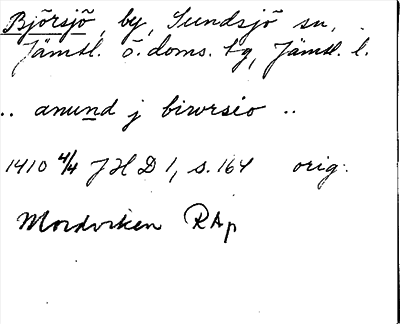 Björsjö, by, Sundsjö sn,
Jämtl. ö. doms. tg, Jämtl. l.
.. anund j biwrsio ..
1410 4/4 JHD 1, s. 164 orig.
Mordviken RAp